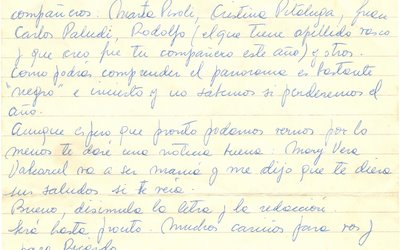 compañeros. Marta Piroli, Cristina Pitaluga, Juan
Carlos Paludi, Rodolfo (el que tiene apellido vasco
y que creo fue tu compañero este año) y otros.
Como podrás comprender el panorama es bastante
"negro" e incierto y no sabemos si perderemos el
año.
Aunque espero que pronto podamos vernos por lo
menos te daré una noticia buena. Mary Vera
va a ser mamá y me dijo que te diera
sus saludos si te veía.
Bueno, disimula la letra y la redacción.
Será hasta pronto. Muchos cariños para vos y
para Ricardo